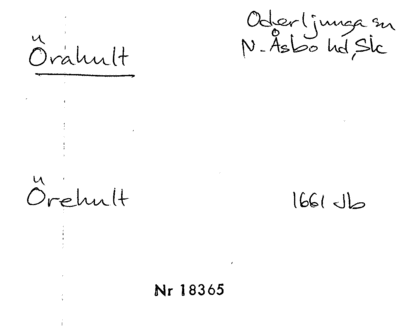 Örahult
Oderljunga sn
N. Åsbo hd, Sk
Örehult
1661 Jb
Nr 18365